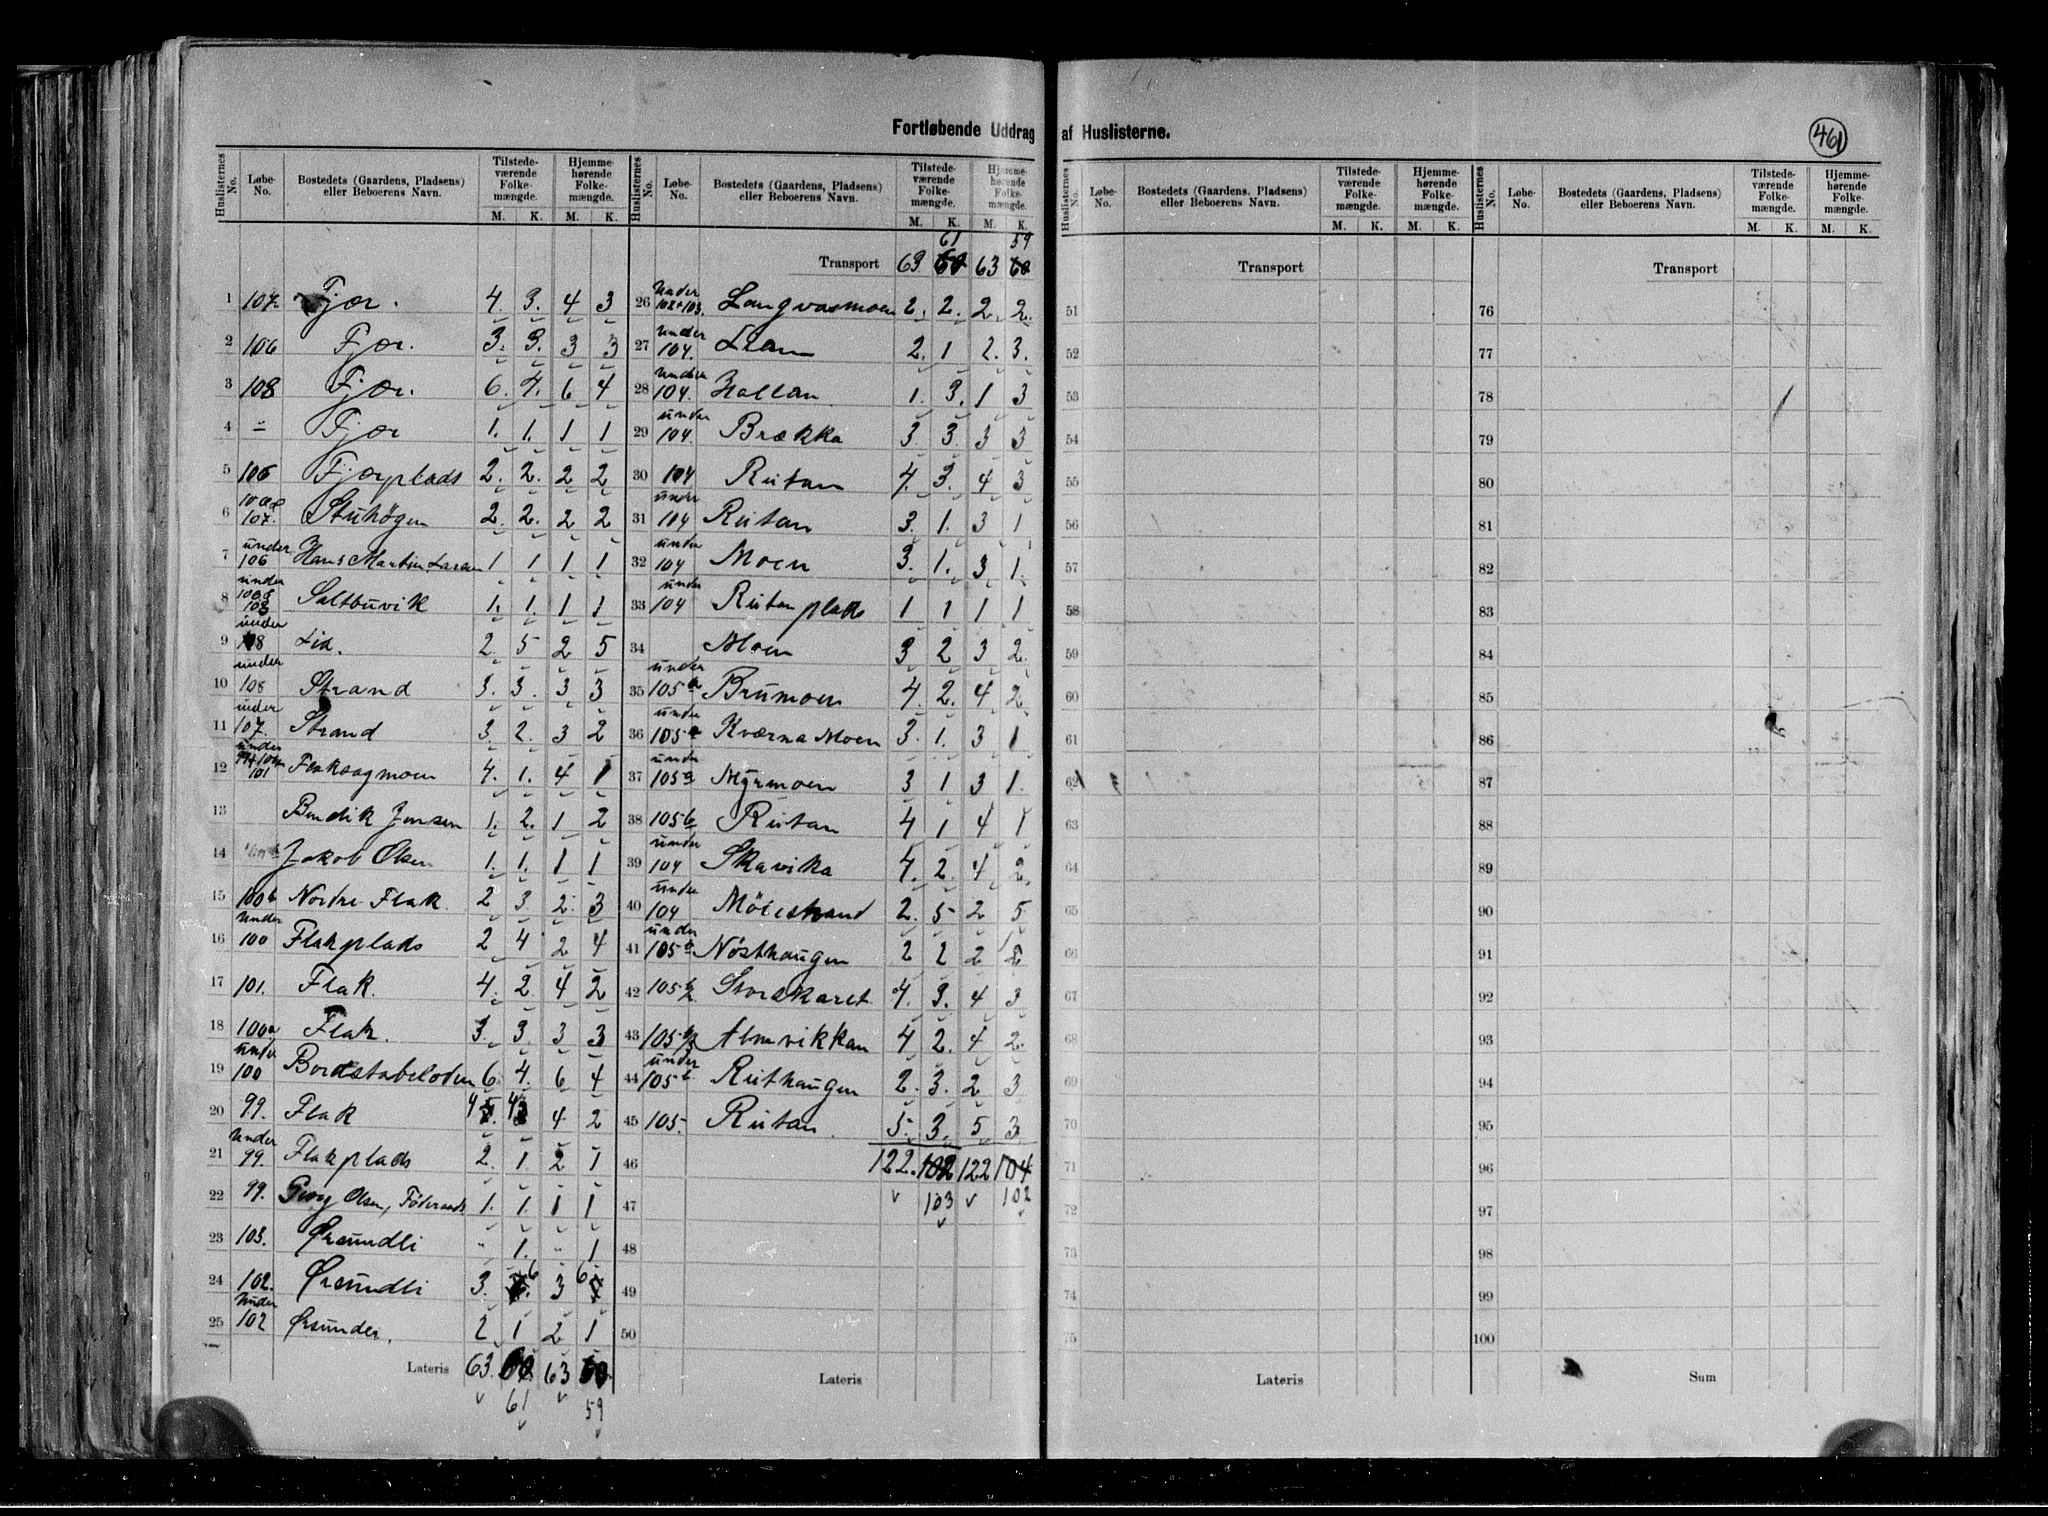 Fortløbende Uddrag af Huslisterne.
461
Huslisternes No. Løbe-No. Bostedets (Gaardens, Pladsens) eller Beboerens Navn. Tilstedeværende Folkemængde. M. K. Hjemmehørende Folkemængde. M. K.
1 107. Fjær. 4. 3. 4 3
2 106 Fjær. 3. 3. 3 3
3 108 Fjær. 6. 4. 6 4
4 = Fjær 1. 1. 1 1
5 106 Fjærplads 2. 2. 2 2
6 107. Stuhögen 2. 2. 2 2
7 under 106 Hans Martin Larsen 1 1 1 1
8 under 108 Saltbuvik 1. 1. 1 1
9 under 108 Lid. 2. 5 2 5
10 under 108 Strand 3. 3. 3 3
11 under 107. Strand 3. 2. 3 2
12 under 101 Flaksagmoen 4. 1. 4 1
13 Bendik Jensen 1. 2. 1 2
14 Jakob Olsen 1. 1. 1 1
15 100b Nordre Flak. 2 3. 2. 3
16 under 100 Flakplads 2 4 2 4
17 101. Flak. 4. 2. 4 2
18 100a Flak. 3. 3. 3 3
19 under 100 Bordstabeloden 6. 4. 6 4
20 99. Flak 4 4 4 2
21 under 99. Flakplads 2. 1. 2 1
22 99. Olsen, Föderaads 1. 1. 1 1
23 103. Ørsundli " 1. " 1
24 102. Ørsundli 3. 6 3 6
25 under 102 Ørsundli. 2 1 2 1
Lateris 63. 60 63 60
61 59
Huslisternes No. Løbe-No. Bostedets (Gaardens, Pladsens) eller Beboerens Navn. Tilstedeværende Folkemængde. M. K. Hjemmehørende Folkemængde. M. K.
61 59
Transport 63. 60 63 60
26 under 102+103. Langvasmoen 2. 2. 2. 2.
27 under 104. Lian 2. 1 2. 3.
28 under 104. Hallan 1. 3. 1 3
29 under 104. Brækka 3. 3. 3 3
30 104 Rutan 4. 3. 4 3
31 under 104 Rutan 3. 1. 3 1
32 under 104 Moen 3. 1. 3 1.
33 under 104 Rutanplads 1 1 1 1
34 Moen 3 2 3 2.
35 under 105a Brumoen 4. 2. 4 2
36 under 105a Kværna Moen 3. 1. 3 1
37 under 105a Myrmoen 3 1 3 1.
38 105b Rutan 4 1 4 1
39 under 104 Skavika 4. 2. 4 2.
40 under 104 Möiestrand 2. 5 2 5
41 under 105 Nösthaugen 2 2 2 2
42 105 Storskaret 4. 3. 4 3
43 105 Almvikkan 4 2. 4 2.
44 under 105b Ruthaugen 2. 3. 2 3
45 105. Rutan 5. 3. 5 3
46 122. 102 122 104
47 103 102
48
49
50
Lateris
Huslisternes No. Løbe-No. Bostedets (Gaardens, Pladsens) eller Beboerens Navn. Tilstedeværende Folkemængde. M. K. Hjemmehørende Folkemængde. M. K.
Transport
51
52
53
54
55
56
57
58
59
60
61
62
63
64
65
66
67
68
69
70
71
72
73
74
75
Lateris
Huslisternes No. Løbe-No. Bostedets (Gaardens, Pladsens) eller Beboerens Navn. Tilstedeværende Folkemængde. M. K. Hjemmehørende Folkemængde. M. K.
Transport
76
77
78
79
80
81
82
83
84
85
86
87
88
89
90
91
92
93
94
95
96
97
98
99
100
Sum